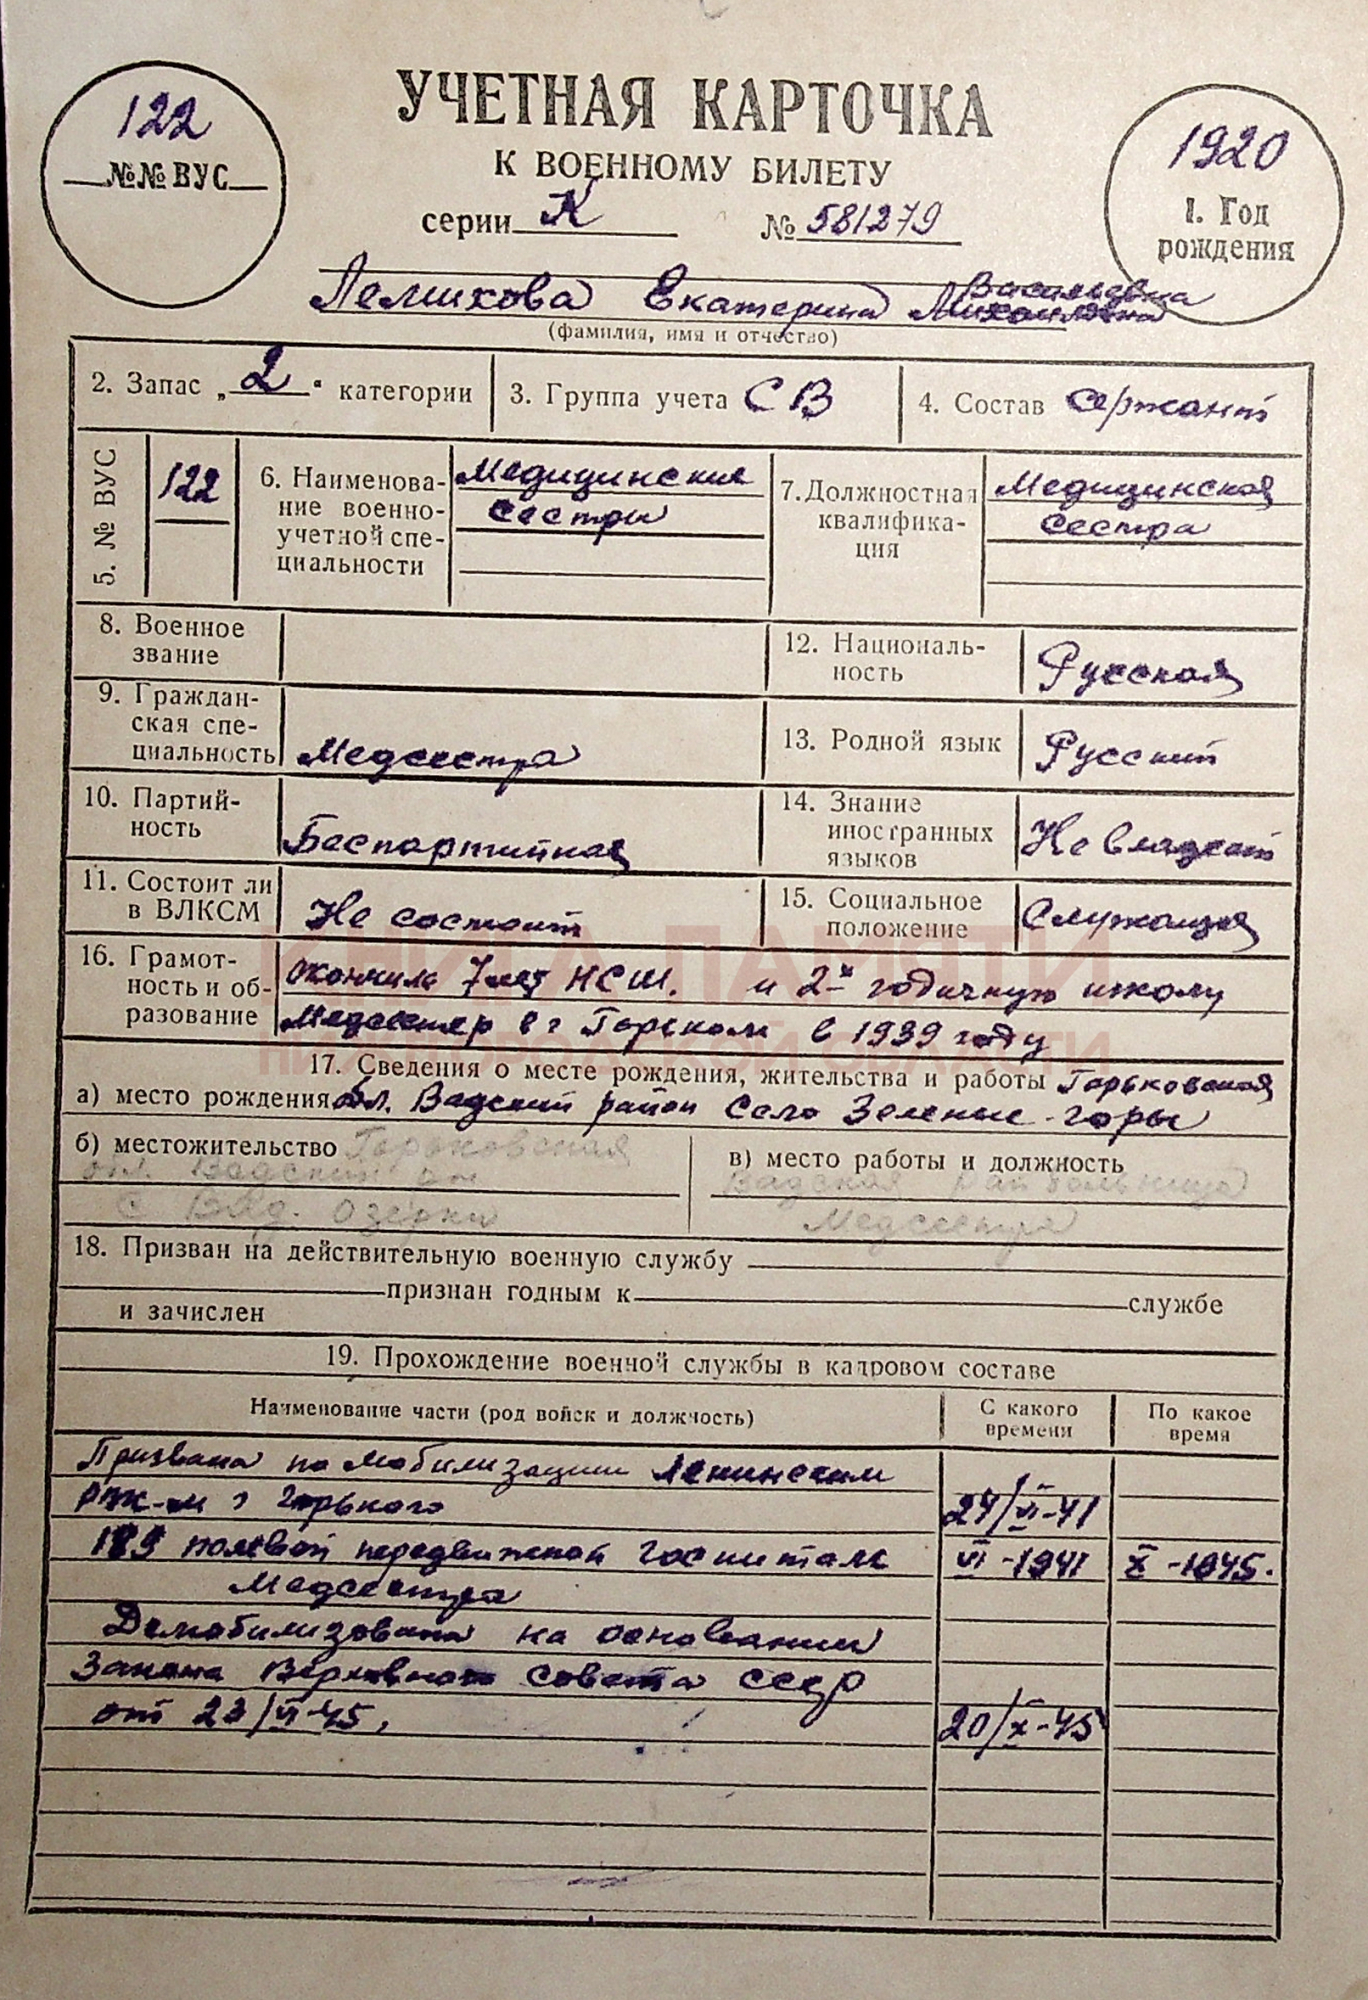 122
№№ ВУС
УЧЕТНАЯ КАРТОЧКА
К ВОЕННОМУ БИЛЕТУ
серии К № 581279
1920
1. Год
рождения
Васильевна
Лемихова Екатерина Михайловна
(фамилия, имя и отчество)
2. Запас „2“ категории
3. Группа учета СВ
4. Состав сержант
5. № ВУС
122
6. Наименова-
ние военно-
учетной спе-
циальности
Медицинские
сестры
7. Должностная
квалифика-
ция
Медицинская
сестра
8. Военное
звание
12. Националь-
ность
Русская
9. Граждан-
ская спе-
циальность
Медсестра
13. Родной язык
Русский
10. Партий-
ность
Беспартийная
14. Знание
иностранных
языков
Не владеет
11. Состоит ли
в ВЛКСМ
Не состоит
15. Социальное
положение
Служащая
16. Грамот-
ность и об-
разование
окончила 7 лет НСШ. и 2х годичную школу
Медсестер в г Горьком в 1939 году
КНИГА ПАМЯТИ
НИЖЕГОРОДСКОЙ ОБЛАСТИ
17. Сведения о месте рождения, жительства и работы Горьковская
а) место рождения обл. Вадский район Село Зеленые-горы
б) местожительство Горьковская
обл. Вадский р-н
с Вад. Озерки
в) место работы и должность
Вадская райбольница
Медсестра
18. Призван на действительную военную службу
признан годным к службе
и зачислен
19. Прохождение военной службы в кадровом составе
Наименование части (род войск и должность)
С какого
времени
По какое
время
Призвана по мобилизации Ленинским
РВК-м г Горького 24/VI-41
183 полевой передвижной госпиталь VI-1941 X-1945.
Медсестра
Демобилизована на основании
Закона Верховного Совета СССР
от 23/VI-45, 20/X-45